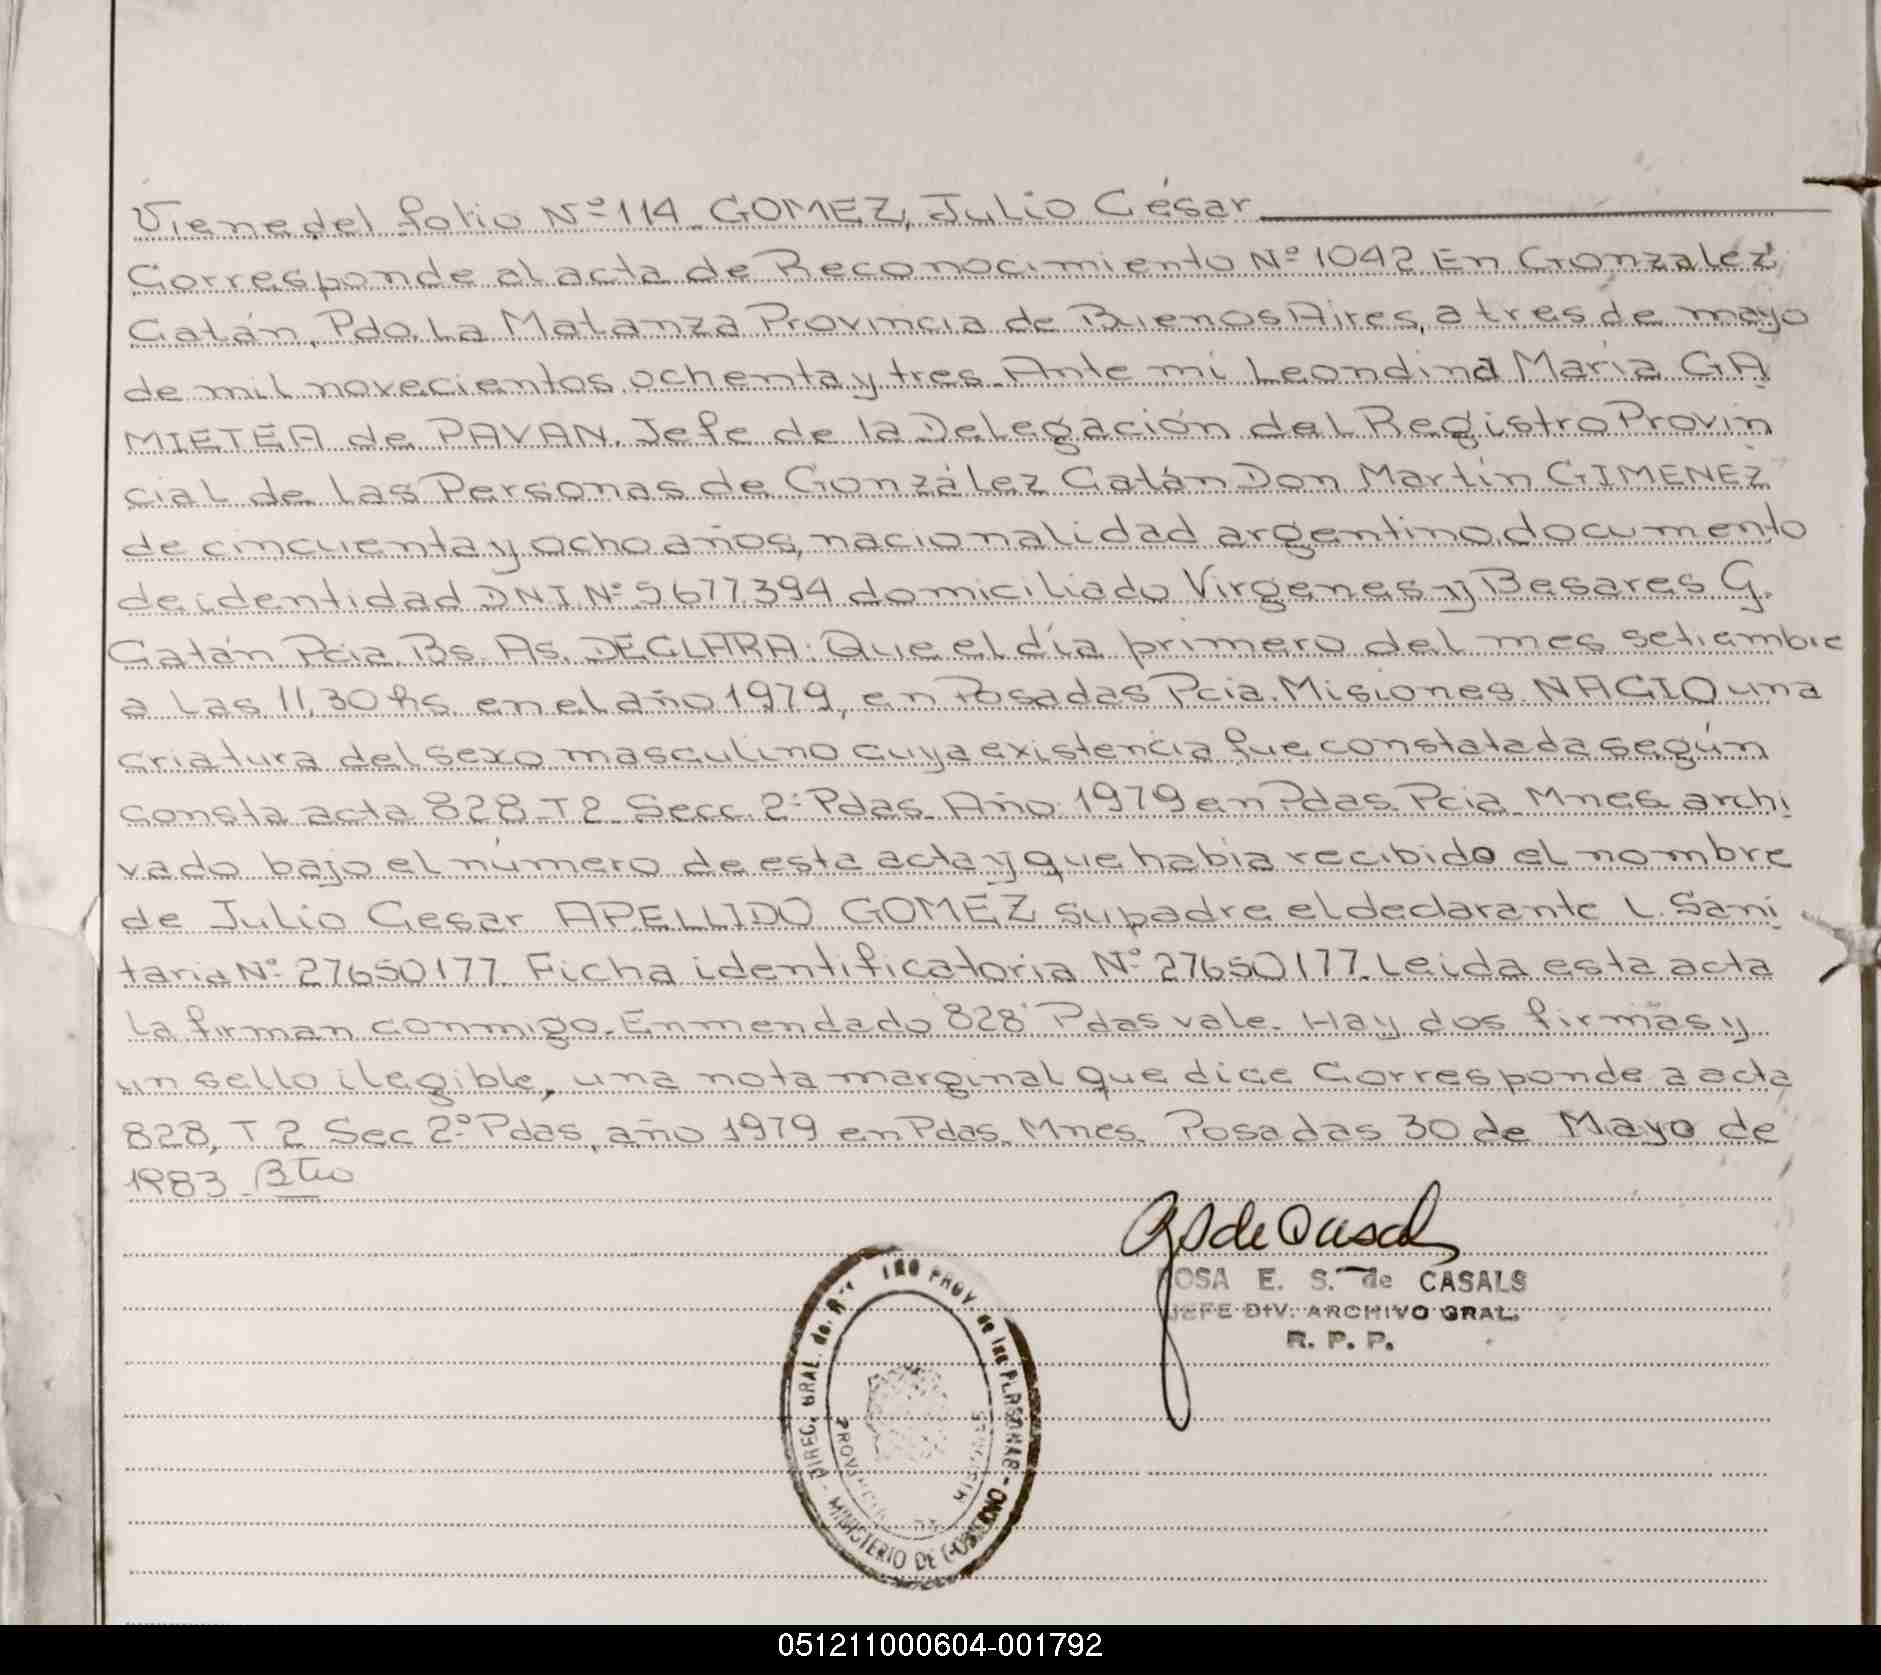 Viene del folio Nº 114 GOMEZ, Julio César
Corresponde al acta de Reconocimiento Nº 1042 En Gonzalez
Catán, Pdo. La Matanza Provincia de Buenos Aires, a tres de mayo
de mil novecientos ochenta y tres. Ante mi Leondina María GA
MIETEA de PAVAN, Jefe de la Delegación del Registro Provin
cial de las Personas de González Catán Don Martín GIMENEZ
de cincuenta y ocho años, nacionalidad argentino, documento
de identidad DNI Nº 5677394 domiciliado Virgenes y Besares G.
Catán Pcia. Bs. As. DECLARA: Que el día primero del mes setiembre
a las 11,30 hs. en el año 1979, en Posadas Pcia. Misiones. NACIO una
criatura del sexo masculino cuya existencia fue constatada según
consta acta 828 T 2 Secc. 2ª Pdas. Año 1979 en Pdas. Pcia. Mnes. archi
vado bajo el número de esta acta y que habia recibido el nombre
de Julio Cesar APELLIDO GOMEZ su padre el declarante L. Sani
taria Nº 27650177. Ficha identificatoria Nº 27650177. Leida esta acta
la firman conmigo. Enmendado 828 Pdas vale. Hay dos firmas y
un sello ilegible, una nota marginal que dice Corresponde a acta
828, T 2 Sec 2º Pdas, año 1979 en Pdas. Mnes. Posadas 30 de Mayo de
1983.
OSA E. S. de CASALS
JEFE DIV. ARCHIVO GRAL.
R. P. P.
DIREC. GRAL. de PROV. de las PERSONAS - MINISTERIO DE GOBIERNO -
PROVINCIA MISIONES
051211000604-001792